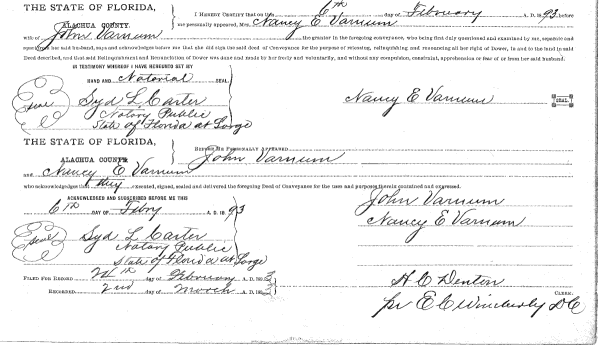 THE STATE OF FLORIDA,
ALACHUA COUNTY.
I HEREBY CERTIFY that on the 6th day of February A. D. 1893, before
me personally appeared, Mrs. Nancy E Varnum
wife of John Varnum the grantor in the foregoing conveyance, who being first duly questioned and examined by me, separate and
apart from her said husband, says and acknowledges before me that she did sign the said deed of Conveyance for the purpose of releasing, relinquishing and renouncing all her right of Dower, in and to the land in said
Deed described, and that said Relinquishment and Renunciation of Dower was done and made by her freely and voluntarily, and without any compulsion, constraint, apprehension or fear of or from her said husband.
IN TESTIMONY WHEREOF I HAVE HEREUNTO SET BY
HAND AND Notarial SEAL.
Seal
Syd L Carter
Notary Public
State of Florida at Large
Nancy E Varnum
SEAL.
THE STATE OF FLORIDA,
ALACHUA COUNTY.
BEFORE ME PERSONALLY APPEARED John Varnum
and Nancy E Varnum
who acknowledges that they executed, signed, sealed and delivered the foregoing Deed of Conveyance for the uses and purposes therein contained and expressed.
ACKNOWLEDGED AND SUBSCRIBED BEFORE ME THIS
6th DAY OF Feby A. D. 1893
John Varnum
Nancy E Varnum
Seal
Syd L Carter
Notary Public
State of Florida at Large
FILED FOR RECORD 24th day of February A. D. 1893
RECORDED 2nd day of March A. D. 1893
H C Denton
CLERK.
pr E C Wimberly D C